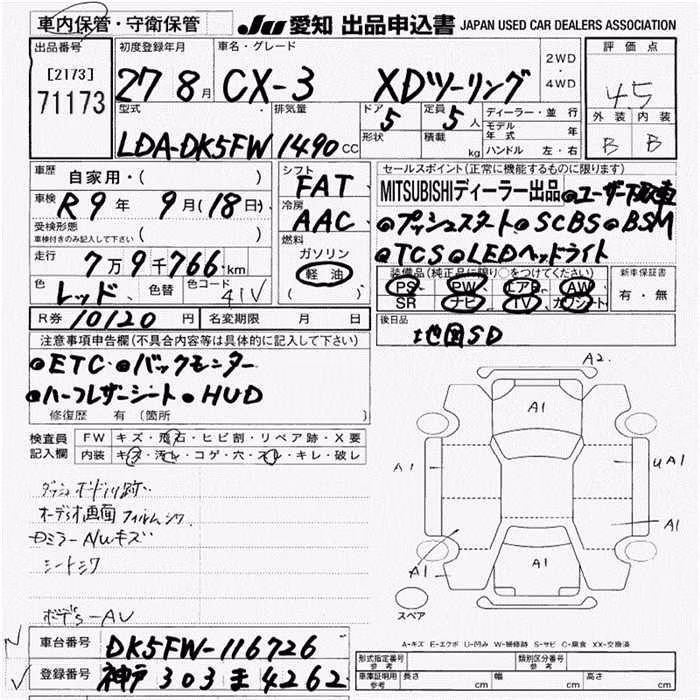 車内保管・守衛保管 JU 愛知 出品申込書 JAPAN USED CAR DEALERS ASSOCIATION
出品番号 初度登録年月 車名・グレード 2WD・4WD 評価点
[2173]
71173 27 8月 CX-3 XDツーリング 4.5
型式 排気量 ドア 5 定員 5人 ディーラー・並行 外装 内装
LDA-DK5FW 1490cc 形状 積載 kg モデル年式 年 B B
ハンドル 左・右
車歴 自家用・( ) シフト FAT セールスポイント(正常に機能するものに限ります)
車検 R9年 9月(18日) 冷房 AAC MITSUBISHIディーラー出品
受検形態 ( ) ●プッシュスタート●SCBS●BSM
車検付きのみ記入して下さい 燃料 ●TCS●LEDヘッドライト
走行 7万9千766km ガソリン 装備品(純正品に限り○をつけてください) 新車保証書
色 レッド 色替 色コード 41V 軽油 PS PW エアB AW 有・無
( ) SR ナビ TV カワシート
R券 10120円 名変期限 月 日 後日品
注意事項申告欄(不具合内容等は具体的に記入して下さい) 地図SD
●ETC●バックモニター
●ハーフレザーシート●HUD
修復歴 有(箇所 )
検査員記入欄 FW キズ・飛石・ヒビ割・リペア跡・X要
内装 キズ・汚レ・コゲ・穴・スレ・キレ・破レ
オーディオ画面フィルムシワ
シートシワ
A2
A1
A1
uA1
A1
A1
A1
スペア
車台番号 DK5FW-116726
A-キズ E-エクボ U-凹み W-補修跡 S-サビ C-腐食 XX-交換済
登録番号 神戸 303 ま 4262
形式指定番号 参考 類別区分番号 参考
車庫証明用 参考 長さ cm 幅 cm 高さ cm